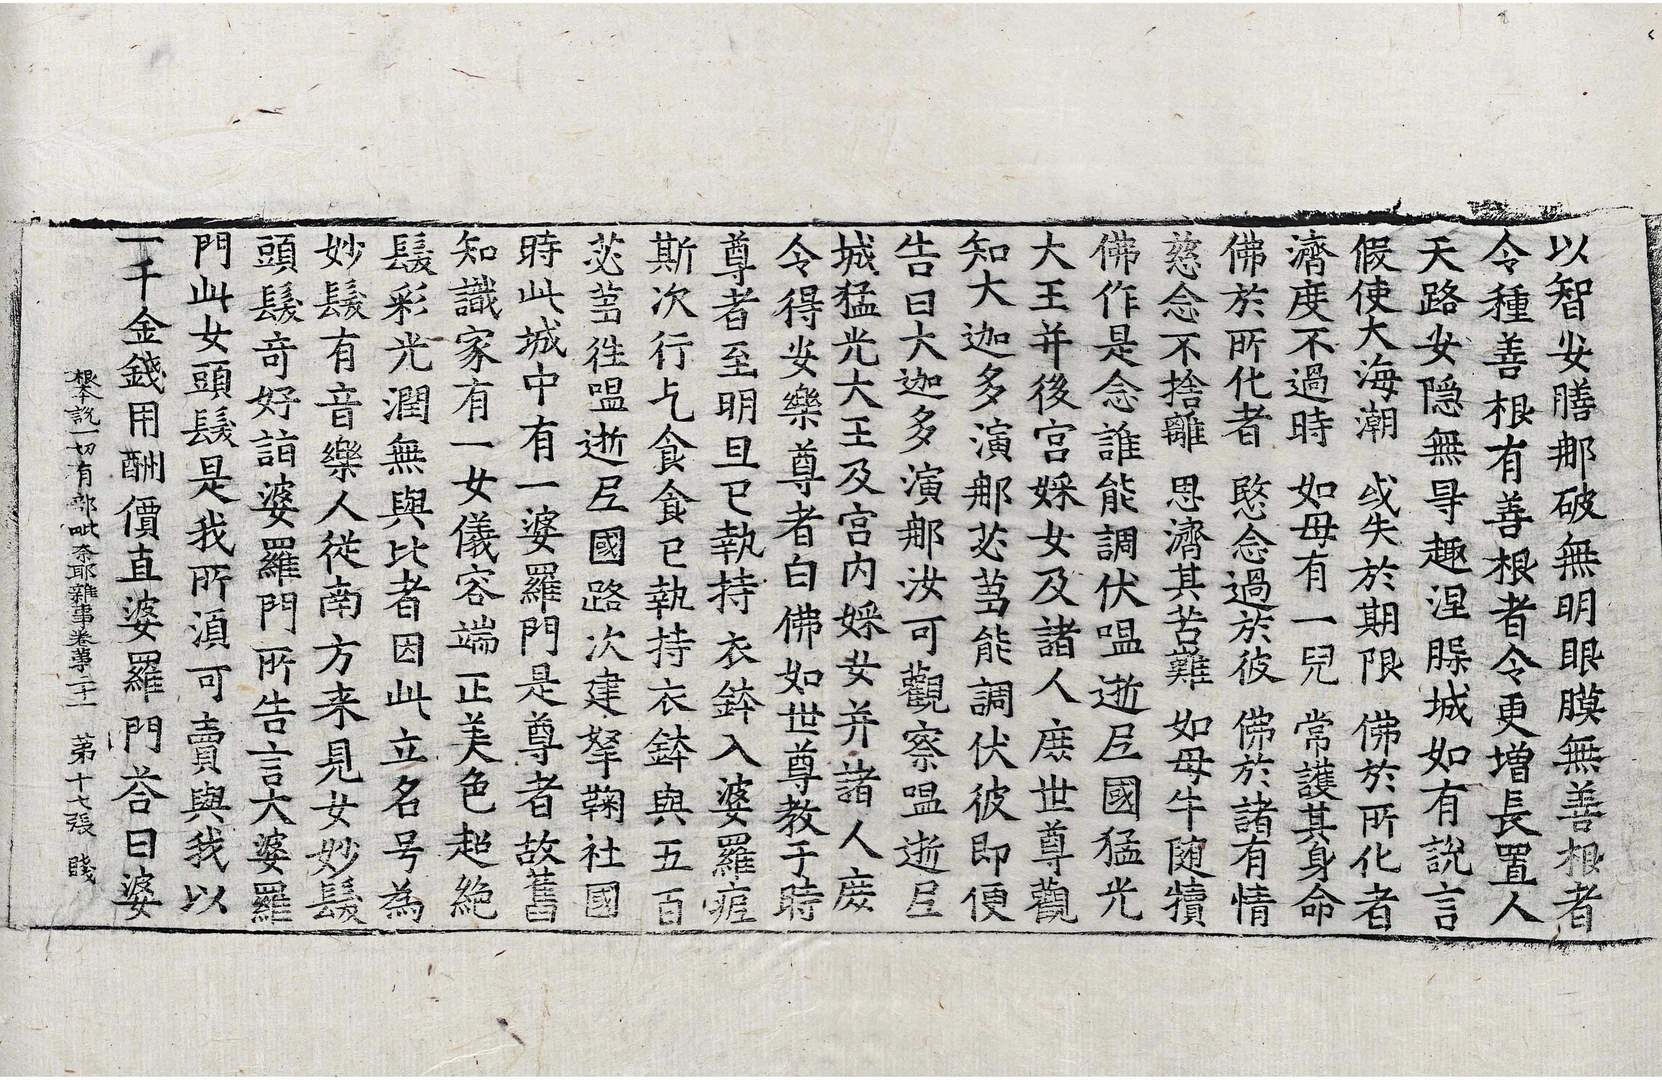 以智安膳那破無明眼膜無善根者
令種善根有善根者令更增長置人
天路安隱無㝵趣涅槃城如有說言
假使大海潮　或失於期限　佛於所化者
濟度不過時　如母有一兒　常護其身命
佛於所化者　愍念過於彼　佛於諸有情
慈念不捨離　思濟其苦難　如母牛随犢
佛作是念誰能調伏嗢逝尼國猛光
大王并後宮婇女及諸人庶世尊觀
知大迦多演那苾蒭能調伏彼即便
告曰大迦多演那汝可觀察嗢逝尼
城猛光大王及宮内婇女并諸人庶
令得安樂尊者白佛如世尊教于時
尊者至明旦已執持衣鉢入婆羅痆
斯次行乞食食已執持衣鉢與五百
苾蒭徃嗢逝尼國路次建拏鞠社國
時此城中有一婆羅門是尊者故舊
知識家有一女儀容端正美色超絶
髮彩光潤無與比者因此立名号為
妙髮有音樂人從南方来見女妙髮
頭髮奇好詣婆羅門所告言大婆羅
門此女頭髮是我所須可賣與我以
一千金錢用酬價直婆羅門荅曰婆
根本說一切有部毗奈耶雜事卷第二十一　第十七張　賤